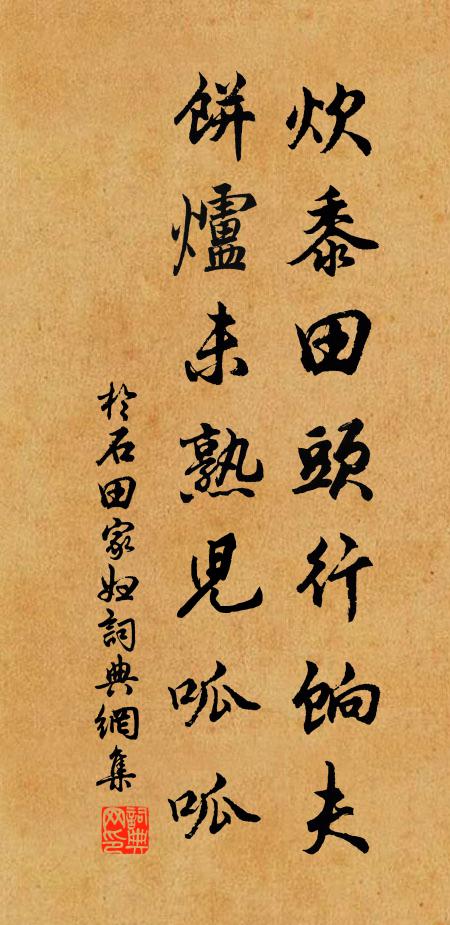 炊黍田頭行餉夫
餅爐未熟兒呱呱
於石田家婦詞典網集
詞典網印